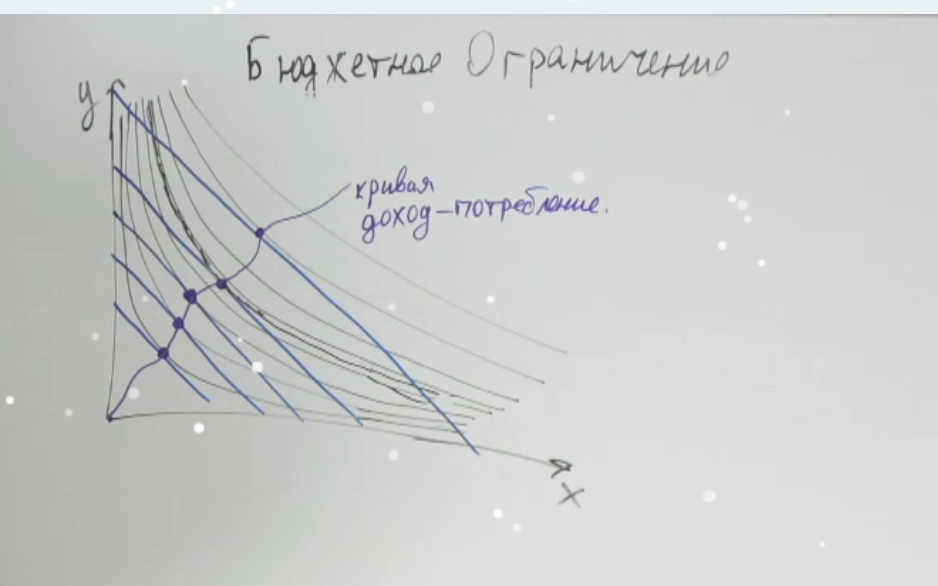 Бюджетное Ограничение
y
кривая
доход-потребление.
x